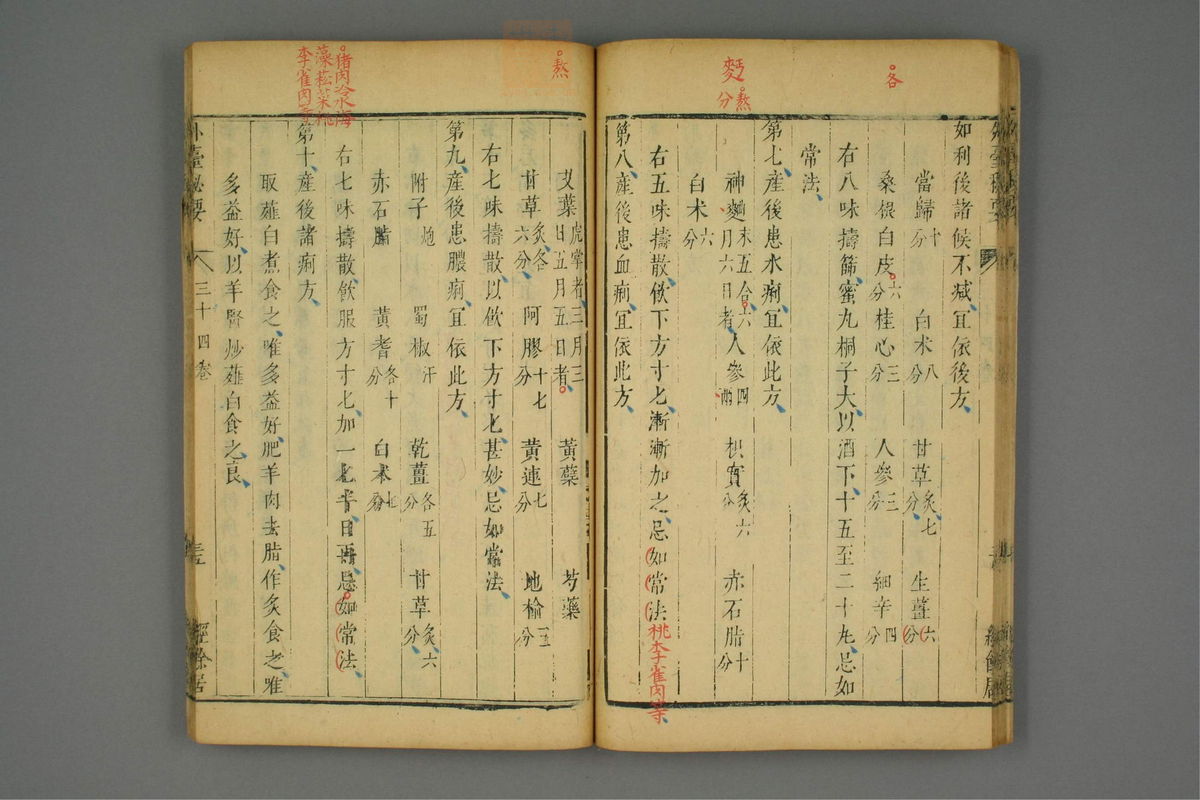 各
麫 熬
分
如利後諸候不減冝依後方
當歸十分 白术八分 甘草炙七分 生薑六分
桑根白皮六分 桂心三分 人參三分 細辛四分
右八味擣篩蜜丸桐子大以酒下十五至二十丸忌如
常法
第七產後患水痢冝依此方
神麴末五合六月六日者 人參四兩 枳實炙六分 赤石脂十分
白术六分
右五味擣散飲下方寸匕漸漸加之忌如常法桃李雀肉等
第八產後患血痢冝依此方
熬
艾葉虎掌者三月三日五月五日者 黃蘗 芍藥
甘草炙各六分 阿膠十七分 黃連七分 地榆五分
右七味擣散以飲下方寸匕甚妙忌如常法
第九產後患膿痢冝依此方
附子炮 蜀椒汗 乾薑各五分 甘草炙六分
赤石脂 黃耆各十分 白术七分
右七味擣散飲服方寸匕加一匕半日再忌如常法
猪肉冷水海
藻菘菜桃
李雀肉等
第十產後諸痢方
取薤白煮食之唯多益好肥羊肉去脂作炙食之唯
多益好以羊腎炒薤白食之良
外臺秘要 三十四卷 經餘居